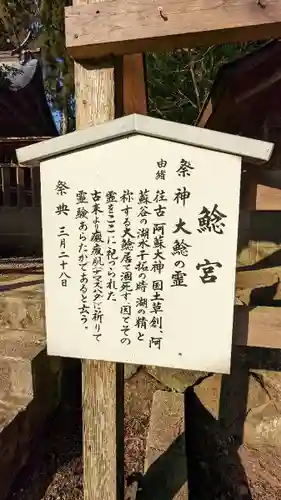 鯰宮
祭神 大鯰の霊
由緒
往古阿蘇大神国土草創、阿
蘇谷の湖水干拓の時湖の精と
称する大鯰居る涸死す、因てその
霊をここに祠られた
古来より癜病(ナマズハダ)に祈りて
霊験あらたかであると云う。
祭典 三月二十八日